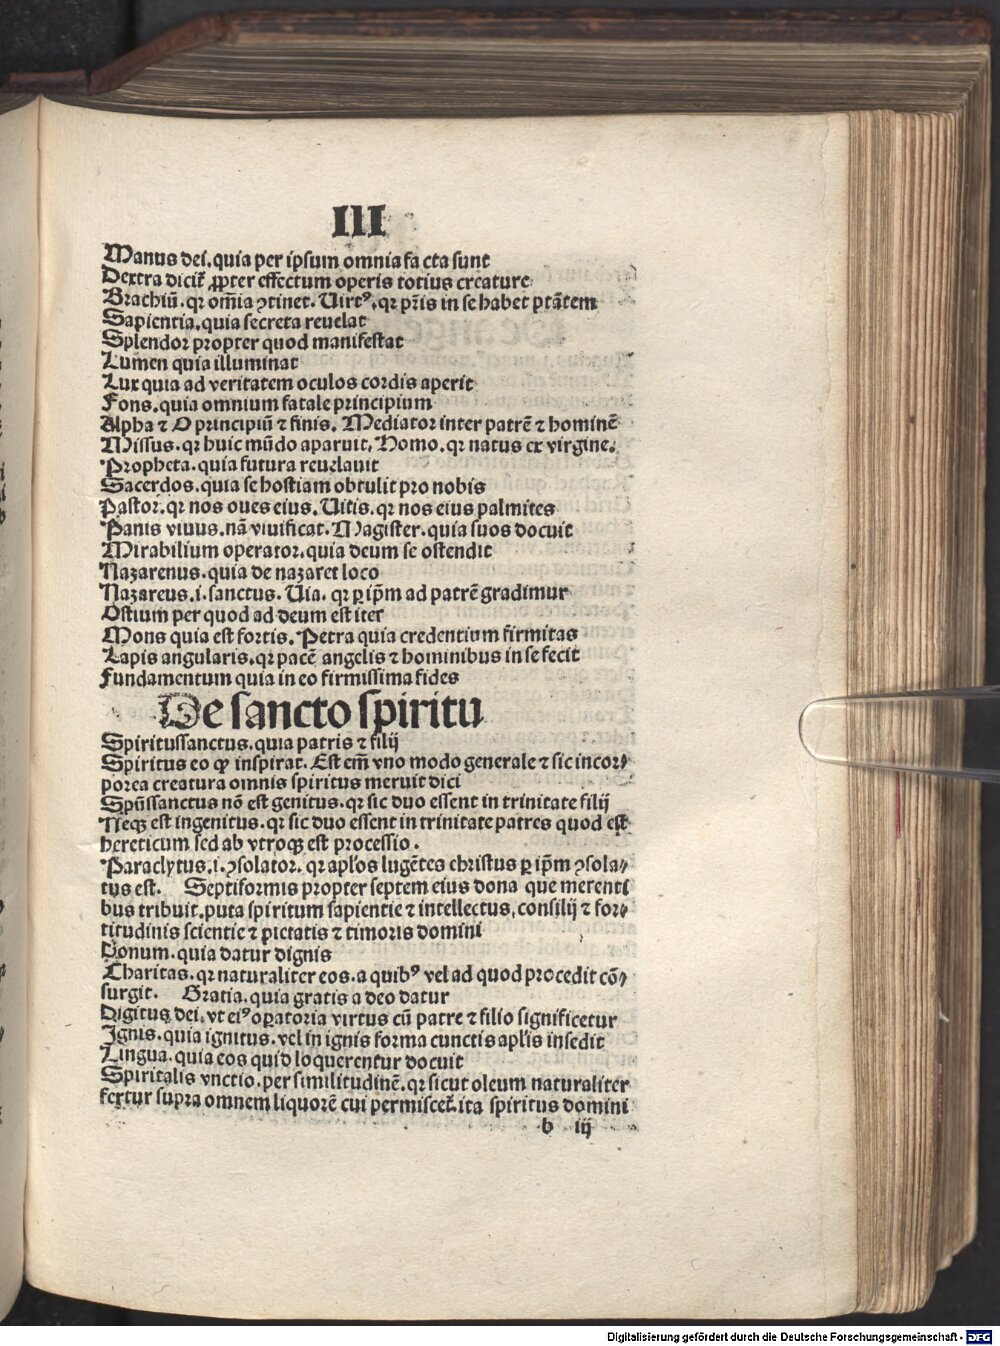 III
Manus dei. quia per ipsum omnia fa cta sunt
Dextra dicit̃ ꝓpter effectum operis totius creature
Brachiũ. qꝛ om̃ia ꝯtinet. Uirtꝰ. qꝛ pr̃is in se habet ptãtem
Sapientia. quia secreta reuelat
Splendor propter quod manifestat
Lumen quia illuminat
Lux quia ad veritatem oculos cordis aperit
Fons. quia omnium fatale principium
Alpha ⁊ O principiũ ⁊ finis. Mediator inter patrẽ ⁊ hominẽ
Missus. qꝛ huic mũdo aparuit. Homo. qꝛ natus ex virgine.
Propheta. quia futura reuelauit
Sacerdos. quia se hostiam obtulit pro nobis
Pastor. qꝛ nos oues eius. Uitis. qꝛ nos eius palmites
Panis viuus. nã viuificat. Magister. quia suos docuit
Mirabilium operator. quia deum se ostendit
Nazarenus. quia de nazaret loco
Nazareus. i. sanctus. Uia. qꝛ ꝑ ip̃m ad patrẽ gradimur
Ostium per quod ad deum est iter
Mons quia est fortis. Petra quia credentium firmitas
Lapis angularis. qꝛ pacẽ angelis ⁊ hominibus in se fecit
Fundamentum quia in eo firmissima fides
De sancto spiritu
Spiritussanctus. quia patris ⁊ filij
Spiritus eo ꝙ inspirat. Est em̃ vno modo generale ⁊ sic incor⸗
porea creatura omnis spiritus meruit dici
Spũssanctus nõ est genitus. qꝛ sic duo essent in trinitate filij
Neqꝫ est ingenitus. qꝛ sic duo essent in trinitate patres quod est
hereticum sed ab vtroqꝫ est processio.
Paraclytus. i. ꝯsolator. qꝛ apl'os lugẽtes christus ꝑ ip̃m ꝯsola⸗
tus est. Septiformis propter septem eius dona que merenti
bus tribuit. puta spiritum sapientie ⁊ intellectus, consilij ⁊ for⸗
titudinis scientie ⁊ pietatis ⁊ timoris domini
Donum. quia datur dignis
Charitas. qꝛ naturaliter eos. a quibꝰ vel ad quod procedit cõ⸗
surgit. Gratia. quia gratis a deo datur
Digitus dei. vt eiꝰ oꝑatoria virtus cũ patre ⁊ filio significetur
Ignis. quia ignitus. vel in ignis forma cunctis apl'is insedit
Lingua. quia eos quid loquerentur docuit
Spiritalis vnctio. per similitudinẽ. qꝛ sicut oleum naturaliter
fertur supra omnem liquorẽ cui permiscet̃. ita spiritus domini
b iij
Digitalisierung gefördert durch die Deutsche Forschungsgemeinschaft - DFG